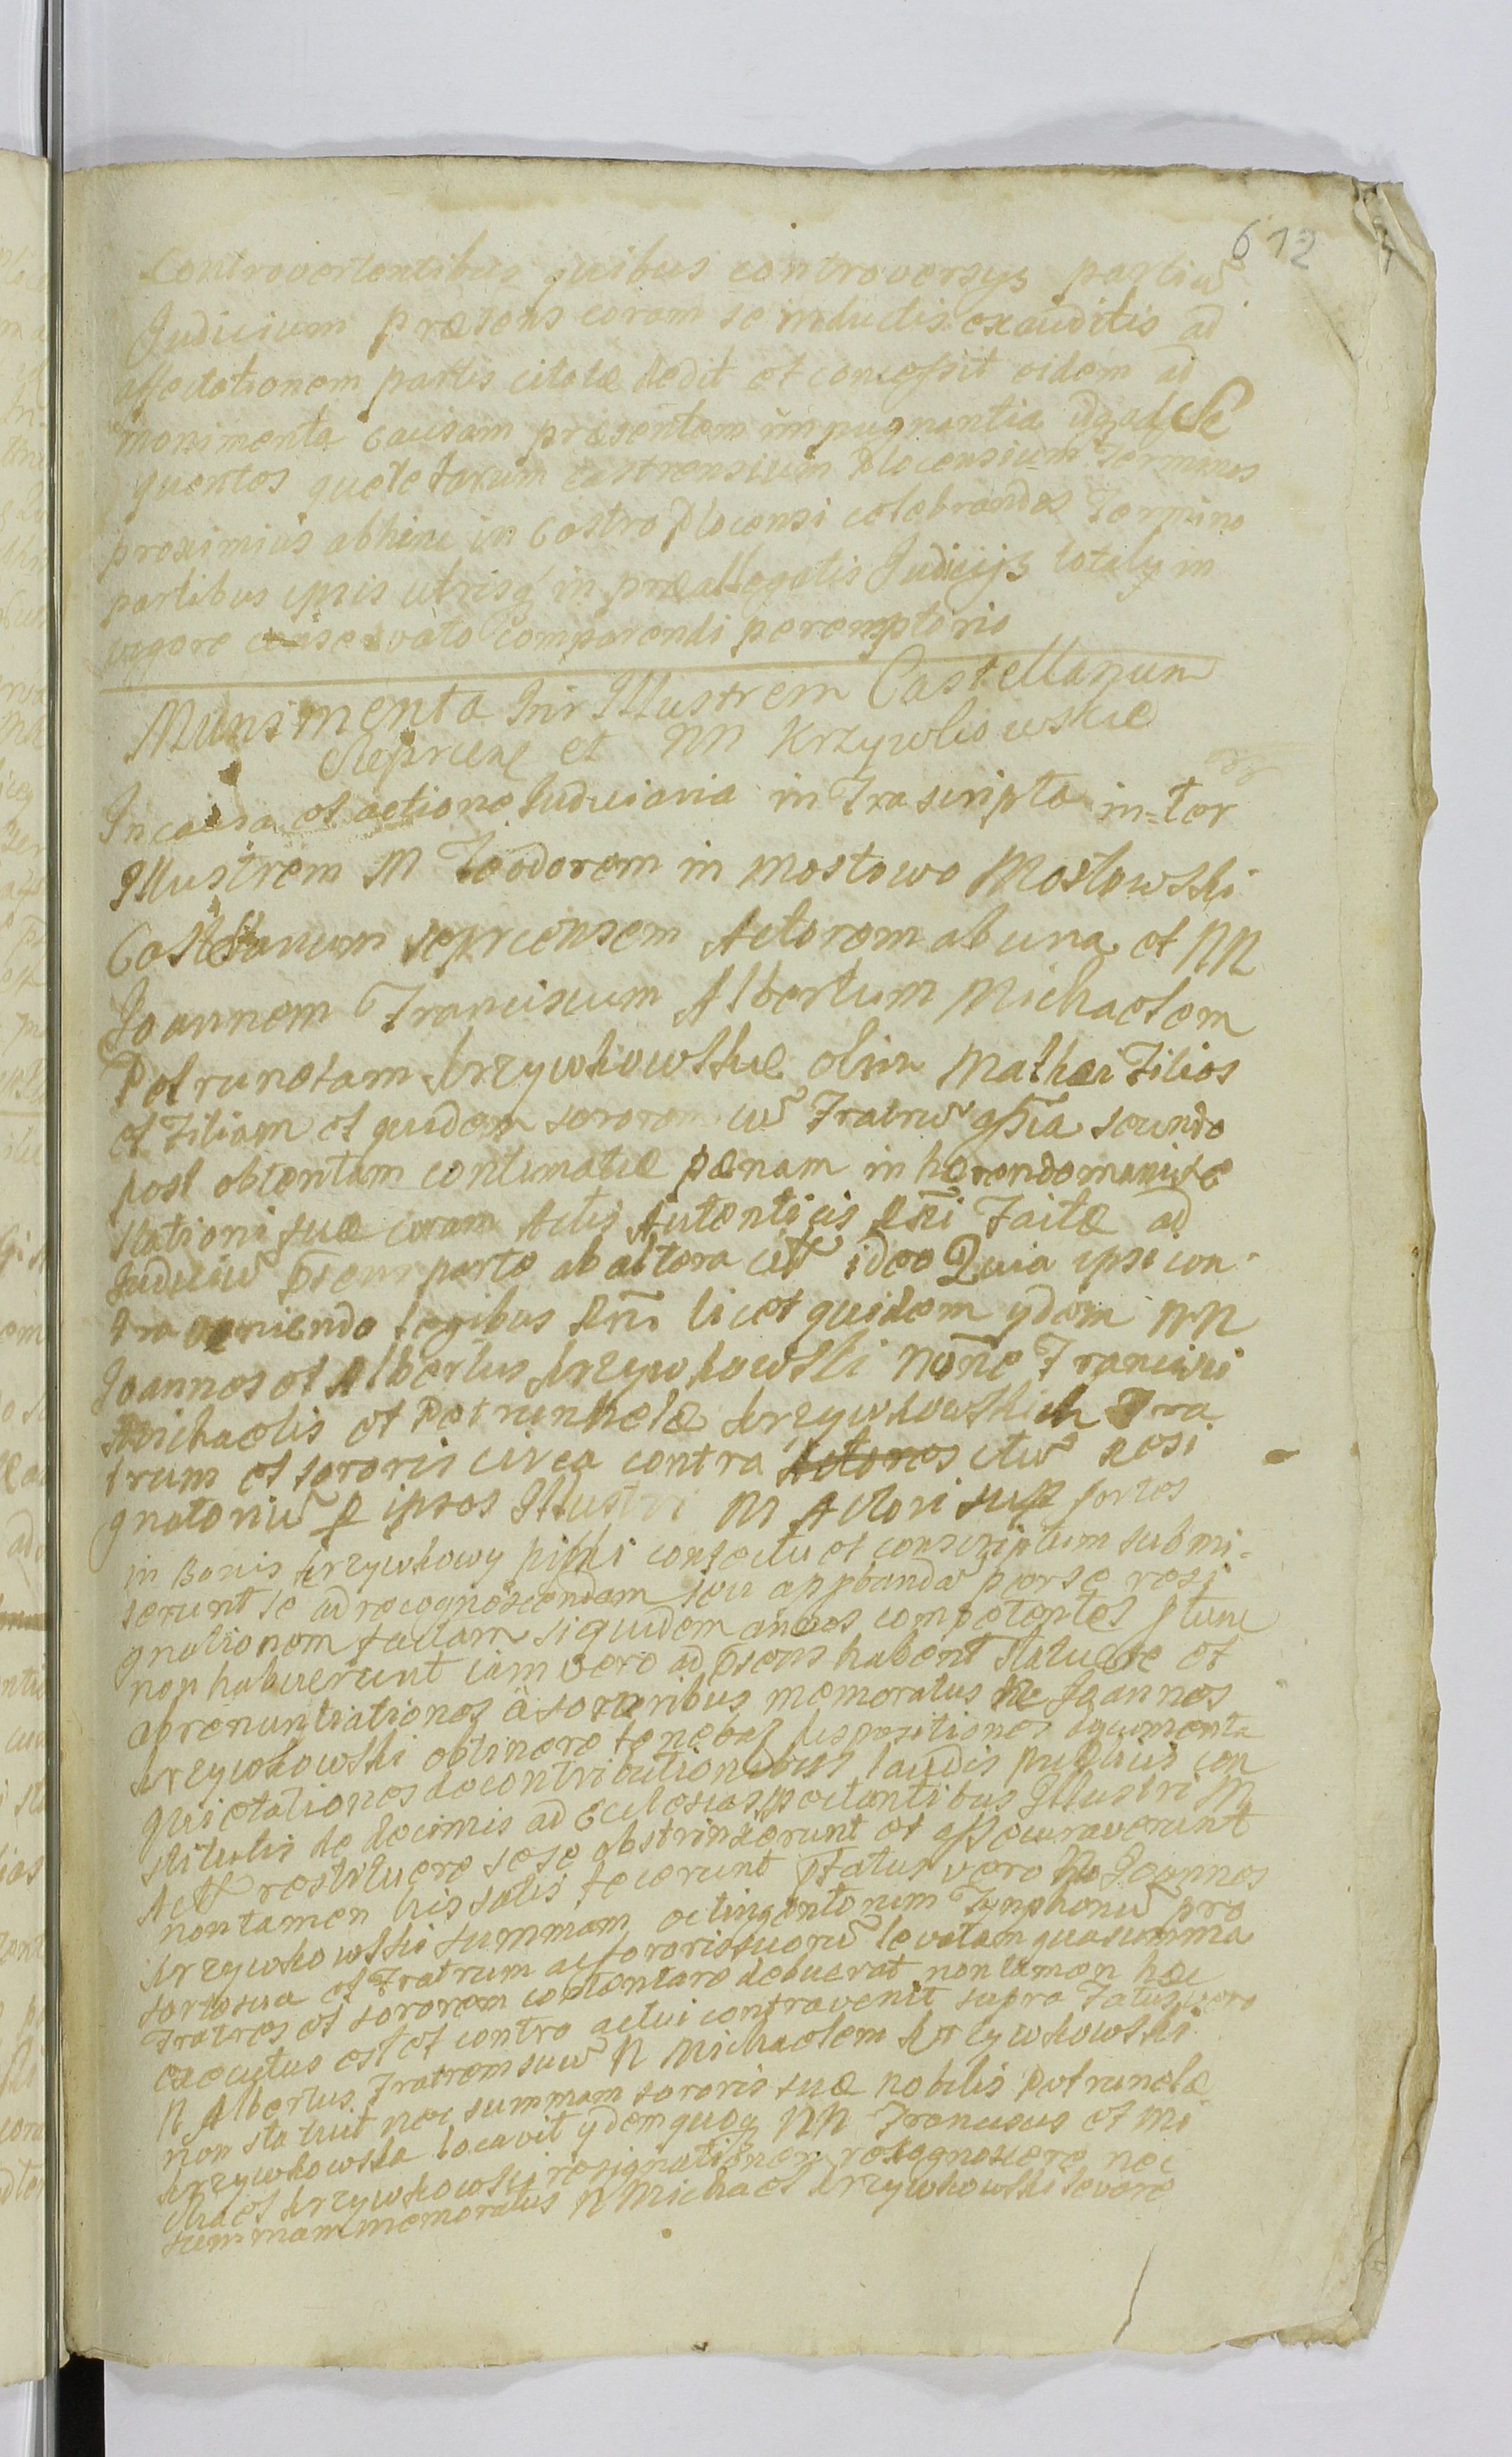 612
Controvertentibus quibus controversys partiu͂
Judicium præsens coram se inductis exauditis ad
affectationem partis citatæ dedit et concessit eidem ad
monimenta causam præsentem impugnantia idq ad Se
quentes querelarum castrensium Plocensium Terminos
proximius abhinc in Castro Plocensi celebrandos Termino
partibus ipsis utrisq in præallegatis Judicijs totaly in
vigore conservato Comparendi peremptorio
Munimenta Intr Illustrem Castellanum
Sieprcens et NN Krzywkowskie
In causa et actione Judiciaria in Frascripta in=ter
Illustrem M Teodorem in Mostowo Mostowski
Castellanum sieprcensem Actorem ab una et NN
Joannem Franciscum Albertum Michaelem
Petrunelam Krzywkowskie olim Mathæi Filios
et Filiam et quidem sororem cu͂ Fratru͂ assña scundo
post obtentam contumatiæ pænam in hærendo manife
stationi suæ coram Actis Autenticis Rñi Faitæ ad
Judiciu͂ pñens parte ab altera citt ideo Quia ipsi con-
tra veniendo legibus Rñi licet quidem ydem NN
Joannes et Albertus Krzywkowski nõne Francisci
Michaelis et Petrunhelæ Krzywkowskich Fra
trum et sororis circa contra Actores ctu͂ Resi
gnatoriu͂ p ipsos Illustri M Actori sup sortes
in Bonis Krzywkowy piski confectu et conscriptum submi-
serunt se ad recognoscendam seu appbanda͂ p se resi
gnationem factam siquidem annos competentes ptunc
non habuerunt iam vero ad pñens habent statuere et
abrenuntiationes à sororibus memoratus N Joannes
Krzywkowski obtinere tenebat dispositiones documenta
Quietationes de contributionibus laudis publicis con
stitutis de decimis ad Eclesias spectantibus Illustri M
Actt restituere sese obstrinxerunt et assecuraverunt
non tamen his satis fecerunt pfatus vero N Joannes
Krzywkowski summam octingentorum Tynphonu͂ pro
sorte sua et Fratrum ac sororis suoru͂ levatam qua summa
Fratres et sororem contentare debuerat non tamen hoc
executus est et contra actui contravenit supra Fatus vero
N Albertus Fratrem suu͂ N Michaelem Krzywkowski
non statuit nec summam sororis suæ nobilis Petrunelæ
Krzywkowska locavit ydem quoq NN Franciscus et Mi
chael Krzywkowski resignationem recognoscere nec
summam memoratus N Michael Krzywkowski levare